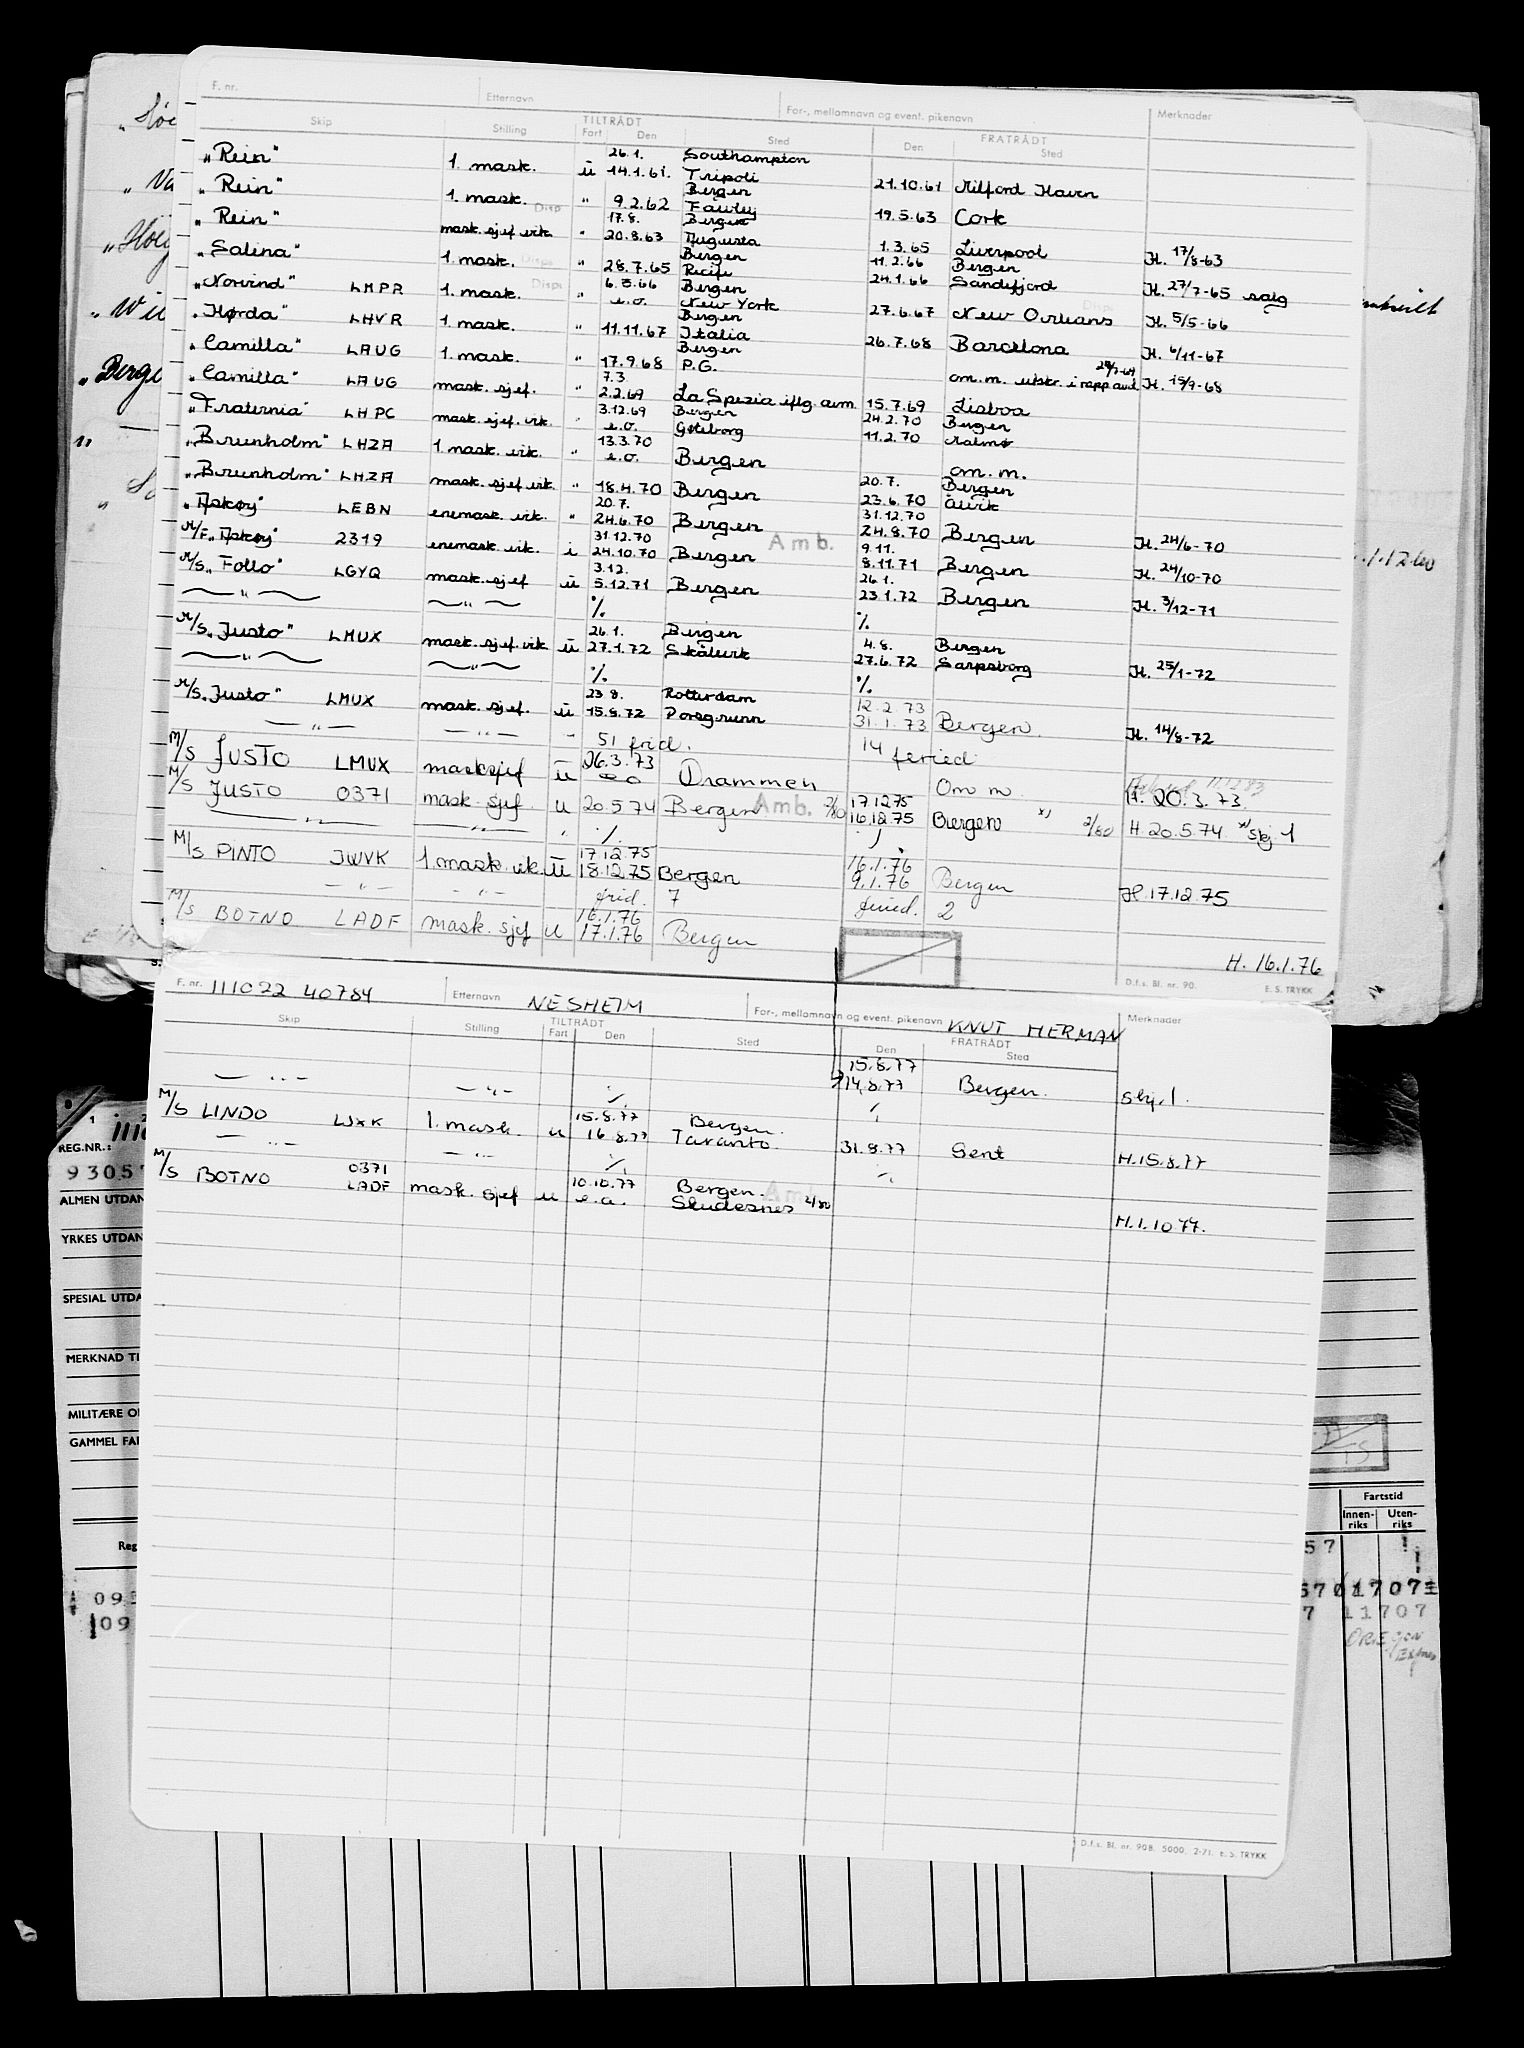 F. nr. Etternavn For-, mellomnavn og event. pikenavn Merknader
Skip Stilling TILTRÅDT Fart Den Sted FRATRÅDT Den Sted
26.1. Southampton
„Rein" 1. mask. u 14.1.61. Tripoli 21.10.61 Milford Haven
Bergen
„Rein" 1. mask. Disp. " 9.2.62 Fawley 19.5.63 Cork
17.8. Bergen
„Rein" mask. sjef vik. " 20.8.63 Augusta 1.3.65 Liverpool H. 17/8-63
Bergen 11.2.66 Bergen
„Salina" 1. mask. Disp. " 28.7.65 Recife 24.1.66 Sandefjord H. 27/7-65 salg
6.5.66 Bergen
„Norvind" LMPR 1. mask. Disp. " e.o. New York 27.6.67 New Orleans H. 5/5-66
Bergen
„Hørda" LHVR 1. mask. " 11.11.67 Italia 26.7.68 Barcelona H. 6/11-67
Bergen
„Camilla" LAUG 1. mask. " 17.9.68 P.G. om.m. utskr. i rapp avd H. 15/9-68
7.3.
„Camilla" LAUG mask. sjef. 2.2.69 La Spezia iflg. avm. 15.7.69 Lisboa
3.12.69 Bergen 24.2.70 Bergen
„Fraternia" LHPC mask. sjef. vik. e.o. Gøteborg 11.2.70 Malmø
13.3.70
„Brunholm" LHZA 1. mask. vik. " e.o. Bergen om. m.
20.7. Bergen
„Brunholm" LHZA mask. sjef vik. " 18.4.70 Bergen 23.6.70 Ålvik
20.7. 31.12.70
„Askøy" LEBN enemask. vik. " 24.6.70 Bergen 24.8.70 Bergen H. 24/6-70
31.12.70 Amb. 9.11.
M/F „Askøy" 2319 enemask. vik. i 24.10.70 Bergen 8.11.71 Bergen H. 24/10-70
3.12. 26.1.
M/S „Follo" LGYQ mask. sjef u 5.12.71 Bergen 23.1.72 Bergen H. 3/12-71
— " — — " — % %
26.1. Bergen 4.8. Bergen
M/S „Justo" LMUX mask. sjef. vik. u 27.1.72 Skålevik 27.6.72 Sarpsborg H. 25/1-72
— " — — " — % %
23 8. Rotterdam 12.2.73
M/S „Justo" LMUX mask. sjef. u 15.8.72 Porsgrunn 31.1.73 Bergen. H. 14/8-72
— " — — " — - 51 frid. 14 feried
26.3.73
M/S JUSTO LMUX masksjef u e o Drammen Om m H. 20.3.73.
M/S JUSTO 0371 mask. sjef. u 20.5 74 Bergen Amb. 2/80 17.12.75 16.12.75 Bergen x) 2/80 H. 20.5.74 x) skj. 1
— " — — " — " %
17.12.75 16.1.76
M/S PINTO JWVK 1. mask. vik. u 18.12.75 Bergen 9.1.76 Bergen H. 17.12.75
— " — — " — frid. 7 feried. 2
16.1.76
M/S BOTNO LADF mask. sjef u 17.1.76 Bergen
H. 16.1.76
D.f.s. Bl. nr. 90. E. S. TRYKK
F. nr. 111022 40784 Etternavn NESHEIM For-, mellomnavn og event. pikenavn KNUT HERMAN Merknader
Skip Stilling TILTRÅDT Fart Den Sted FRATRÅDT Den Sted
15.8.77
— " — — " — % 14.8.77 Bergen. skj. 1.
15.8.77 Bergen. %
M/S LINDO LJXK 1. mask. u 16.8.77 Taranto 31.8.77 Gent H.15.8.77
— " — — " — % %
M/S BOTNO 0371 LADF mask. sjef u 10.10.77 e.o. Bergen. Skudesnes 2/80
H.1.10 77.
D.f.s. Bl. nr. 90B. 5000. 2-71. E. S. TRYKK
REG.NR.:
9305
ALMEN UTDAN
YRKES UTDAN
SPESIAL UTDA
MERKNAD TI
MILITÆRE O
GAMMEL FA
Reg
Fartstid
Innen-riks Uten-riks
57
11707